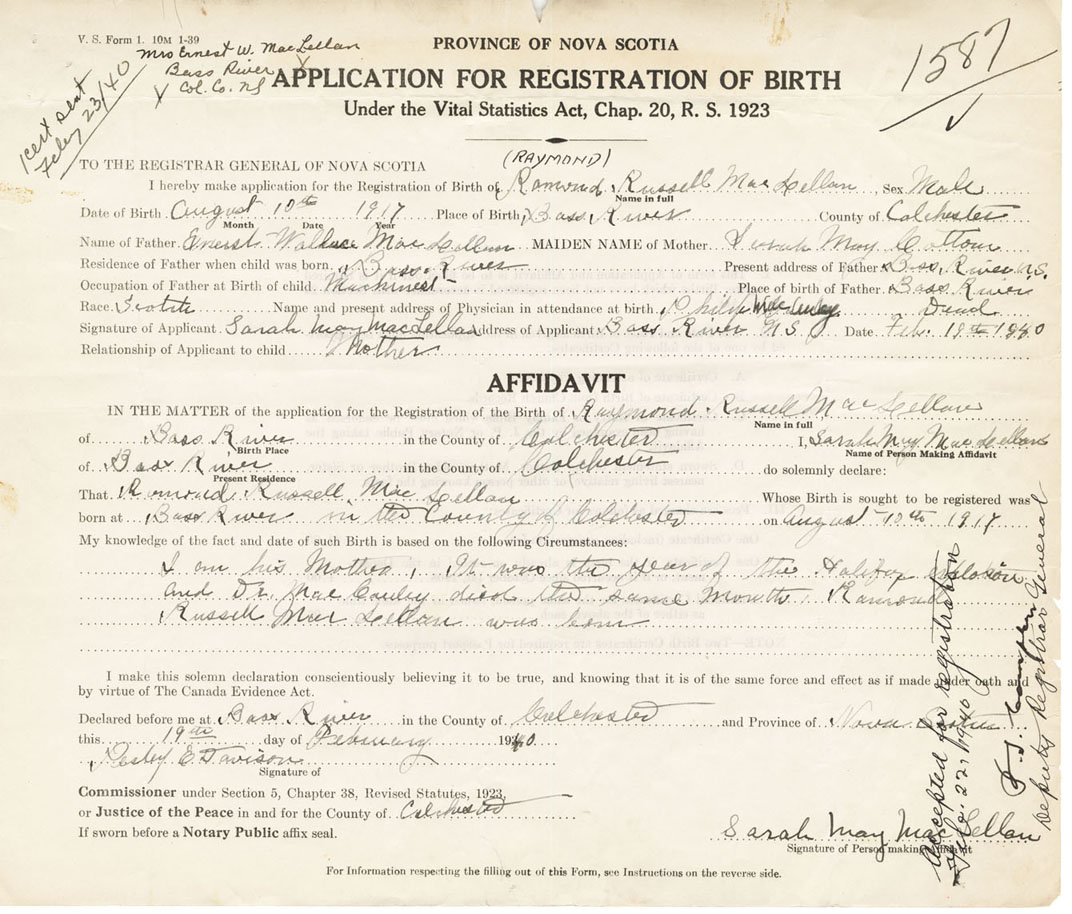 V. S. Form 1. 10M 1-39
Mrs Ernest W. MacLellan
Bass River
Col. Co. NS
1 cert sent
Feby 23/40
1587
PROVINCE OF NOVA SCOTIA
APPLICATION FOR REGISTRATION OF BIRTH
Under the Vital Statistics Act, Chap. 20, R. S. 1923
TO THE REGISTRAR GENERAL OF NOVA SCOTIA
(RAYMOND)
I hereby make application for the Registration of Birth of Romond Russell MacLellan, Sex Male
Name in full
Date of Birth August 10th 1917 Place of Birth Bass River County of Colchester
Month Date Year
Name of Father Ernest Wallace MacLellan MAIDEN NAME of Mother Sarah May Cottom
Residence of Father when child was born Bass River Present address of Father Bass River N.S.
Occupation of Father at Birth of child Machinest Place of birth of Father Bass River
Race Scotch Name and present address of Physician in attendance at birth Dead
Signature of Applicant Sarah May MacLellan Address of Applicant Bass River N S Date Feb. 19th 1940
Relationship of Applicant to child Mother
AFFIDAVIT
IN THE MATTER of the application for the Registration of the Birth of Raymond Russell MacLellan
Name in full
of Bass River in the County of Colchester I, Sarah May MacLellan
Birth Place Name of Person Making Affidavit
of Bass River in the County of Colchester do solemnly declare:
Present Residence
That Romond Russell MacLellan Whose Birth is sought to be registered was
born at Bass River in the County of Colchester on August 10th 1917
My knowledge of the fact and date of such Birth is based on the following Circumstances:
I am his Mother, It was the year of the Halifax
and Dr. MacCauley died the same month Ramond
Russell MacLellan was born
I make this solemn declaration conscientiously believing it to be true, and knowing that it is of the same force and effect as if made under oath and
by virtue of The Canada Evidence Act.
Declared before me at Bass River in the County of Colchester and Province of Nova Scotia
this 19th day of February 1940
Lesley E. Davison
Signature of
Commissioner under Section 5, Chapter 38, Revised Statutes, 1923,
or Justice of the Peace in and for the County of Colchester
If sworn before a Notary Public affix seal.
Sarah May MacLellan
Signature of Person making Affidavit
Accepted for registration
Feb. 22, 1940
Deputy Registrar General
For Information respecting the filling out of this Form, see Instructions on the reverse side.